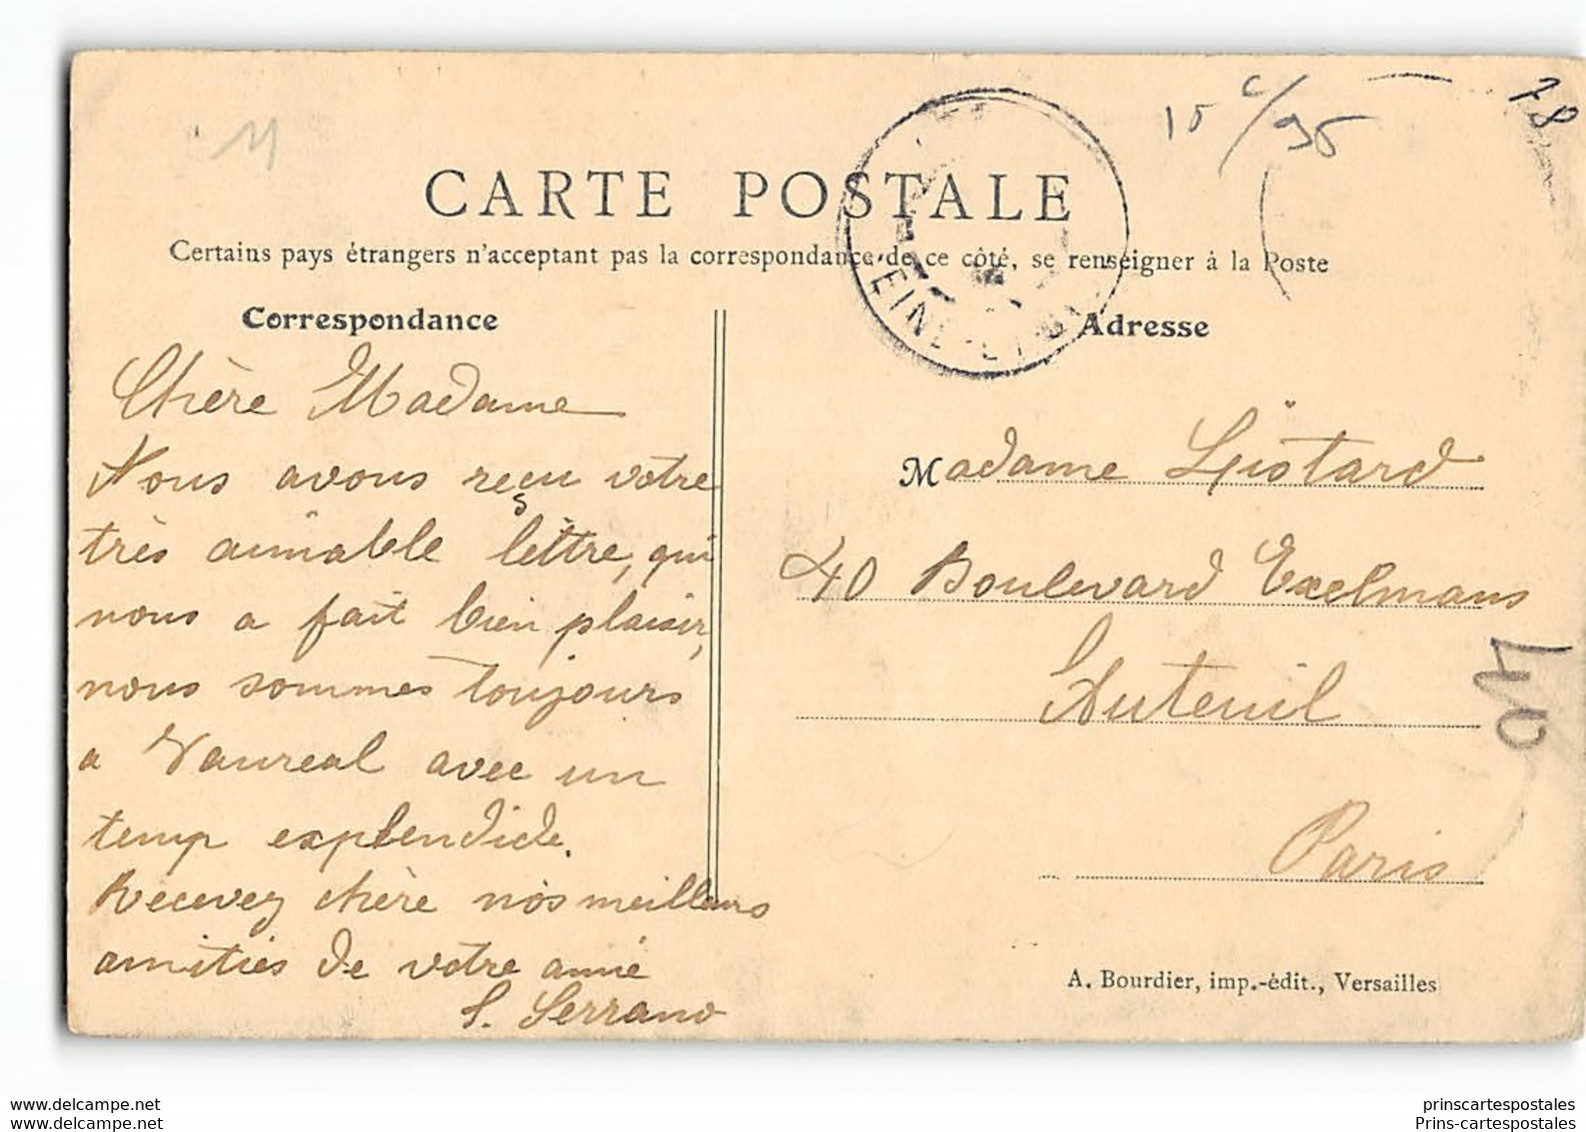 11
15 c/95
78
CARTE POSTALE
Certains pays étrangers n'acceptant pas la correspondance de ce côté, se renseigner à la Poste
Correspondance
Chère Madame
Nous avons reçu votre
très aimable lettre, qui
nous a fait bien plaisir,
nous sommes toujours
a Vaureal avec un
temp explendide.
Recevez chère nos meilleurs
amitiés de votre amie
S. Serrano
EINE-ET-OI
Adresse
Madame Liotard
40 Boulevard Exelmans
Auteuil
Paris
A. Bourdier, imp.-édit., Versailles
www.delcampe.net
www.delcampe.net
prinscartespostales
Prins-cartespostales